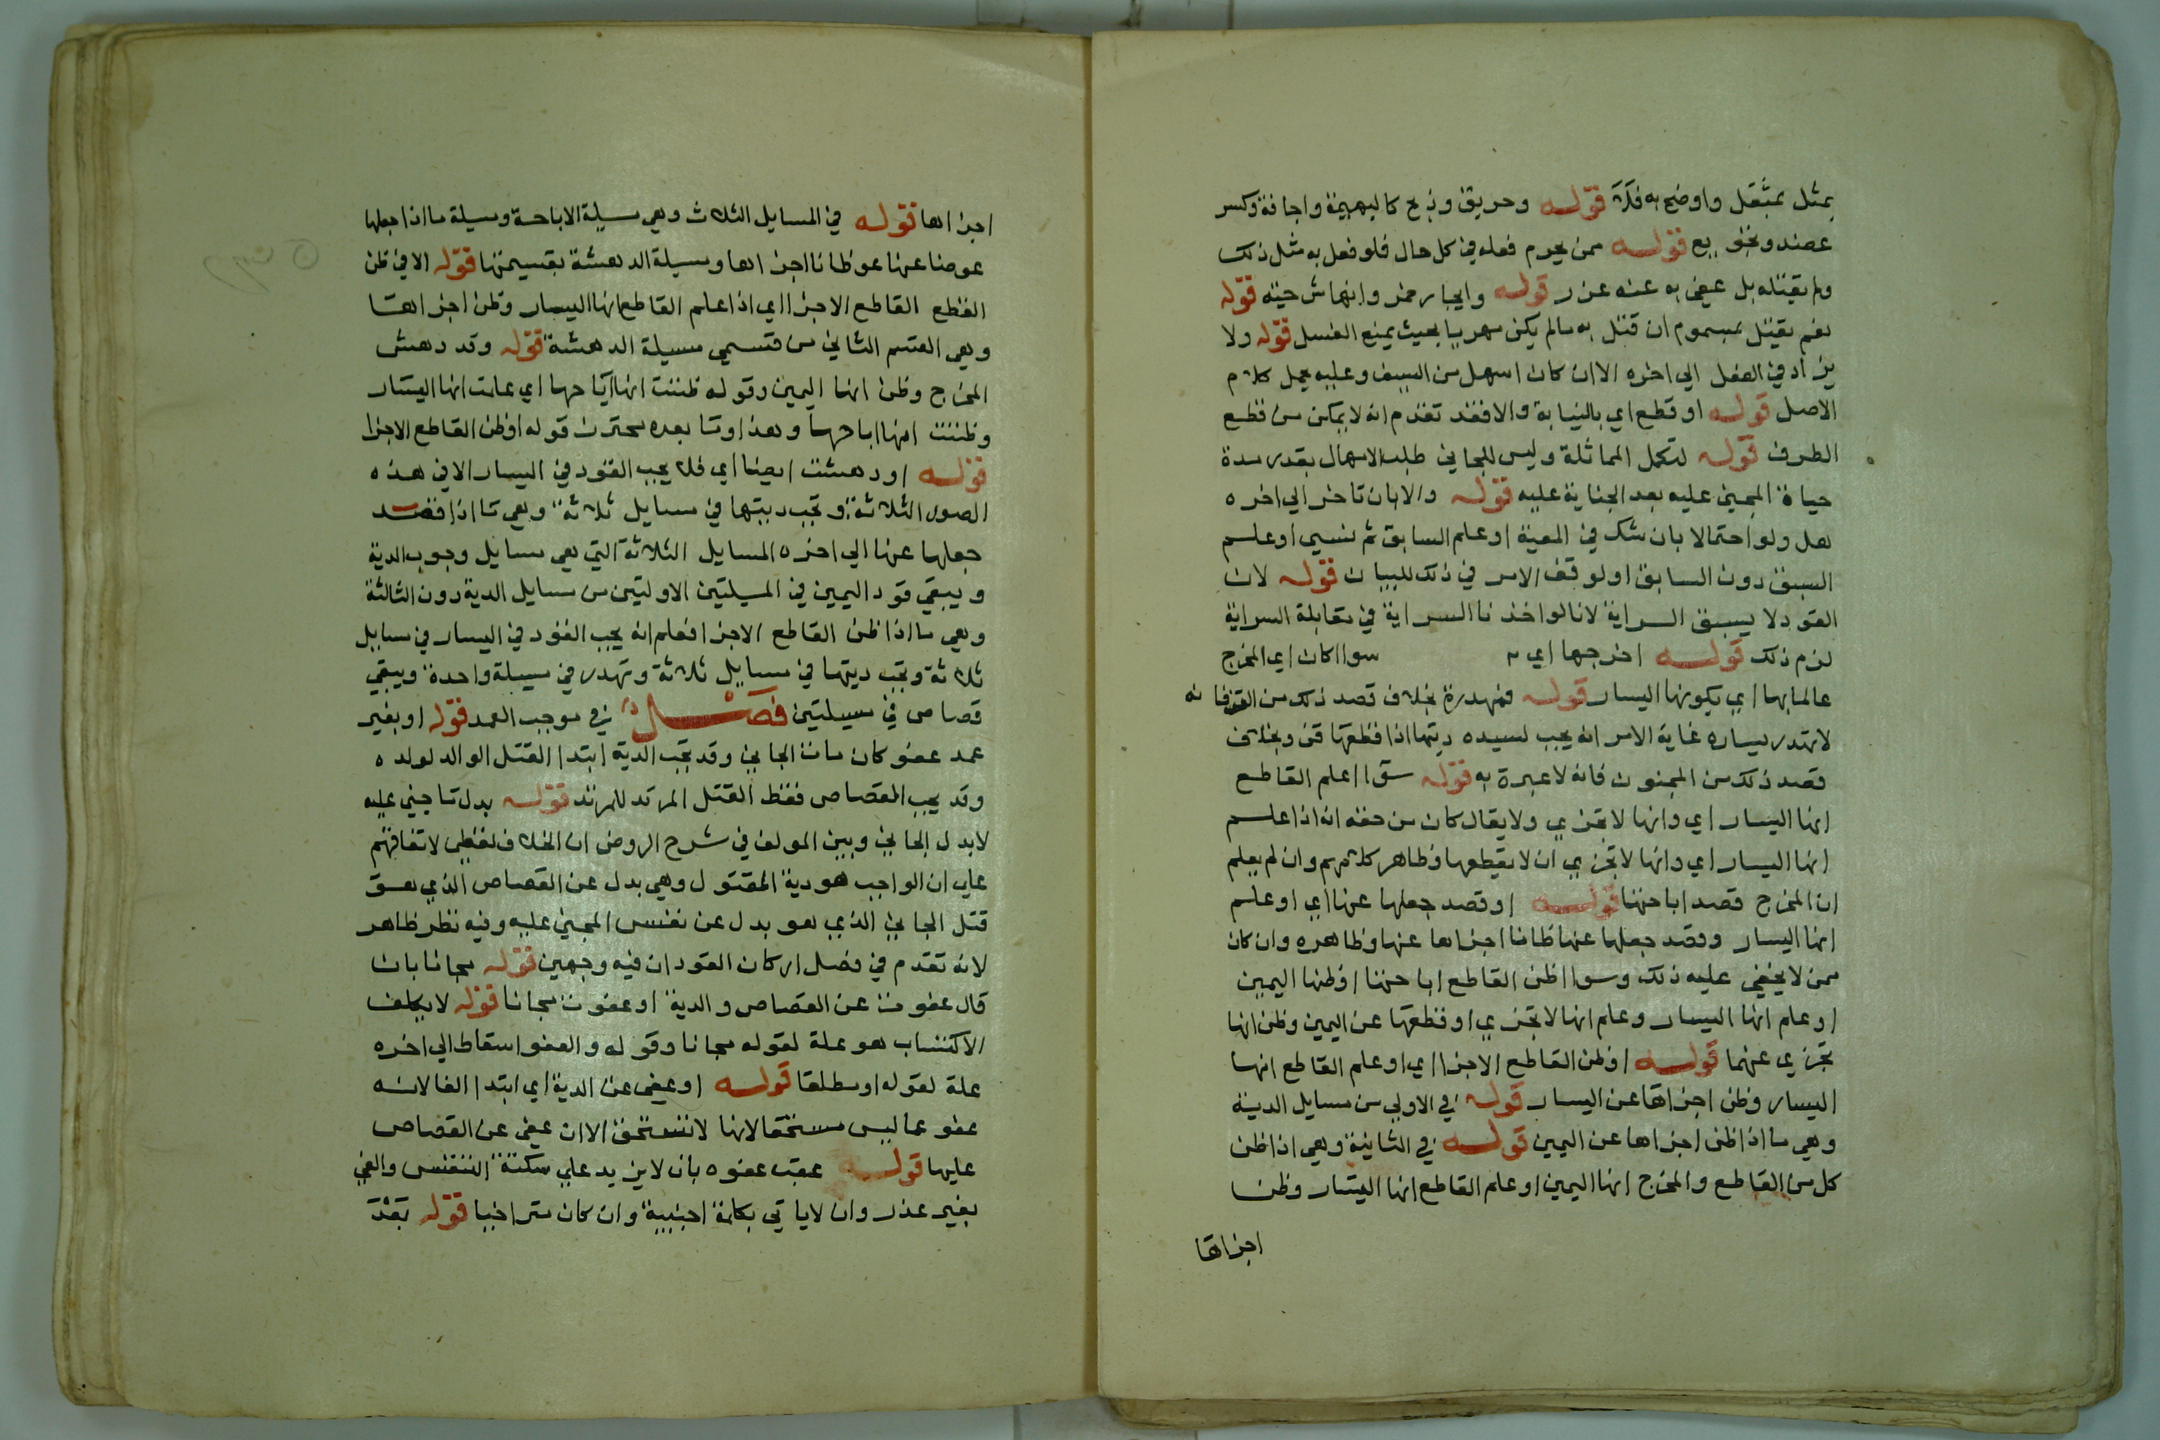 بمثل بمثقل واوضح به فلا قوله وحريق وذبح كالبهيمة واجافة وكسر
عضد ونحو بيع قوله ممن يحرم فعله في كل حال فلو فعل به مثل ذلك
ولم يقتله بل عفى به عنه عزر قوله وايجار خمر وانهاش حية قوله
نعم يقتل بمسموم ان قتل به مالم يكن مهريا بحيث يمنع الغسل قوله ولا
يزاد في الفعل الي اخره الا ان كان اسهل من السيف وعليه يحمل كلام
الاصل قوله او قطع اي بالنيابة والا فقد تقدم انه لا يمكن من قطع
الطرف قوله لتكمل المماثلة وليس للجاني طلب الامهال بقدر مدة
حياة المجني عليه بعد الجناية عليه قوله والا بان تاخر الي اخره
هل ولو احتمالا بان شك في المعية او علم السابق ثم نسي او علم
السبق دون السابق او لوقف الامر في ذلك للبيان قوله لان
القود لا يسبق السراية لانا لو اخذنا السراية في مقابلة السراية
لزم ذلك قوله اخرجها اي سوا اكان اي المخرج
عالما بها اي بكونها اليسار قوله فمهدرة بخلاف قصد ذلك من القن فانه
لا تهدر يساره غاية الامر انه يجب لسيده ديتها اذا قطعها قن وبخلاف
قصد ذلك من المجنون فانه لا عبرة به قوله سوا اعلم القاطع
انها اليسار اي وانها لا تجزي ولا يقال كان من حقه انه اذا علم
انها اليسار اي وانها لا تجزي ان لا يقطعها وظاهر كلامهم وان لم يعلم
ان المخرج قصد اباحتها قوله او قصد جعلها عنها اي او علم
انها اليسار وقصد جعلها عنها ظانا اجزاها عنها وظاهره وان كان
ممن لا يخفى عليه ذلك وسوا اظن القاطع اباحتها او ظنها اليمين
او علم انها اليسار وعلم انها لا تجزي او قطعها عن اليمين وظن انها
تجزي عنهما قوله او ظن القاطع الاجزا اي او علم القاطع انها
اليسار وظن اجزاها عن اليسار قوله في الاولي من مسايل الدية
وهي ما اذا ظن اجزاها عن اليمين قوله في الثانية وهي اذا ظن
كل من القاطع والمخرج انها اليمين او علم القاطع انها اليسار وظن
اجزاها
اجزاها قوله في المسايل الثلاث وهي مسيلة الاباحة ومسيلة ما اذا جعلها
عوضا عنها عوظانا اجزاها ومسيلة الدهشة بقسيمتها قوله الا في ظن
القطع القاطع الاجزا اي اذا علم القاطع انها اليسار وظن اجزاها
وهي القسم الثاني من قسمي مسيلة الدهشة قوله وقد دهش
المخرج وظن انها اليمين وقوله ظننت انه اباحها اي علمت انها اليسار
وظننت انها اباحها وهذا وما بعده محترز قوله او ظن القاطع الاجزا
قوله او دهشت ايضا اي فلا يجب القود في اليسار الا في هذه
الصور الثلاثة وتجب ديتها في مسايل ثلاثة وهي ما اذا قصد
جعلها عنها الي اخره المسايل الثلاثة التي هي مسايل وجوب الدية
ويبقي قود اليمين في المسيلتين الاولتين من مسايل الدية دون الثالثة
وهي ما اذا ظن القاطع الاجزا فعلم انه يجب القود في اليسار في مسايل
ثلاثة وتجب ديتها في مسايل ثلاثة وتهدر في مسيلة واحدة ويبقي
قصاص في مسيلتين فصل في موجب العمد قوله او بغير
عمد عفو كان مات الجاني وقد تجب الدية ابتدا القتل الوالد لولده
وقد يجب القصاص فقط القتل المرتد للمرتد قوله بدل ما جني عليه
لا بدل الجاني وبين المولف في شرح الروض ان الخلاف لفظي لاتفاقهم
علي ان الواجب هو دية المقتول وهي بدل عن القصاص الذي هو
قتل الجاني الذي هو بدل عن نفس المجني عليه وفيه نظر ظاهر
لانه تقدم في فصل اركان القود ان فيه وجهين قوله مجانا بان
قال عفوت عن القصاص والدية او عفوت مجانا قوله لا يكلف
الاكتساب هو علة لقوله مجانا وقوله والعفو اسقاط الي اخره
علة لقوله او مطلقا قوله او عفى عن الدية اي ابتدا الغا لانه
عفو عما ليس مستحقا لانها لا تستحق الا ان عفى عن القصاص
عليها قوله عقب عفوه بان لا يزيد علي سكتة التنفس والعي
بغير عذر وان لا ياتي بكلمة اجنبية وان كان متراخيا قوله بعد